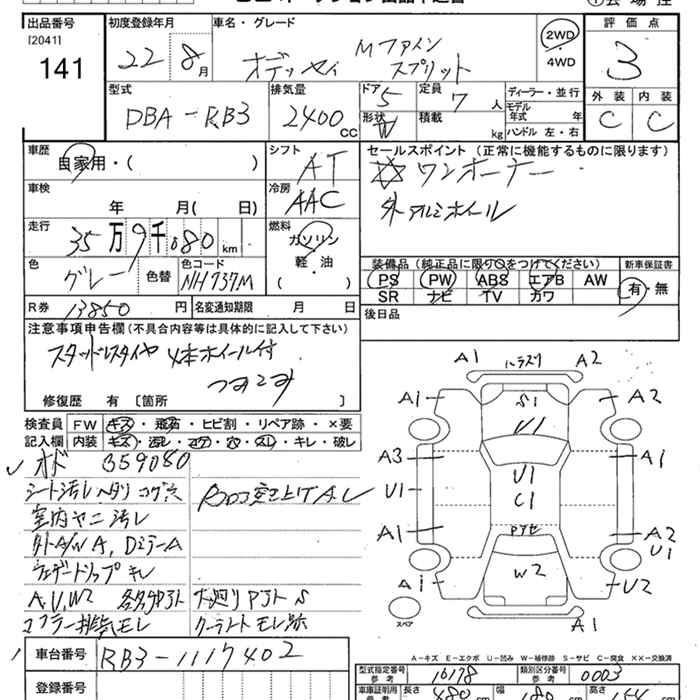 出品番号 初度登録年月 車名・グレード 評価点
[2041]
141
22 8月
オデッセイ Mファインスプリット
2WD
4WD
3
型式 排気量 ドア 定員 ディーラー・並行 外装 内装
DBA-RB3 2400cc 5 7人 モデル年式 年
形状 W 積載 kg ハンドル 左・右 C C
車歴 シフト セールスポイント(正常に機能するものに限ります)
自家用・( ) AT ☆ワンオーナー
車検 冷房 外アルミホイール
年 月( 日) AAC
走行 燃料
35万9千080km ガソリン
軽・油
( )
色 色替 色コード 装備品(純正品に限り○をつけてください) 新車保証書
グレー NH737M PS PW ABS エアB AW 有・無
SR ナビ TV カワ
R券 13850円 名変通知期限 月 日 後日品
注意事項申告欄(不具合内容等は具体的に記入して下さい)
スタッドレスタイヤ 4本ホイール付
つみこみ
修復歴 有[箇所 ]
検査員 FW キズ・飛石・ヒビ割・リペア跡・×要
記入欄 内装 キズ・汚レ・コゲ・穴・スレ・キレ・破レ
オド 359080
シート汚レ ヘタリ コゲ穴
室内ヤニ汚レ
外A/W A, DミラーA
ウェザーストリップ キレ
A, U, W2 各多 下廻り S
マフラー排気モレ クーラントモレ跡
A1 A2
A1 S1 A2
U1
A3 U1 A1
U1 C1
A1 A2
U1
A1 W2 U2
スペア
A1
A-キズ E-エクボ U-凹み W-補修跡 S-サビ C-腐食 ××-交換済
車台番号 RB3-1117402
型式指定番号 参考 16178 類別区分番号 参考 0003
登録番号
車庫証明用 長さ 480 cm 幅 180 cm 高さ 154 cm